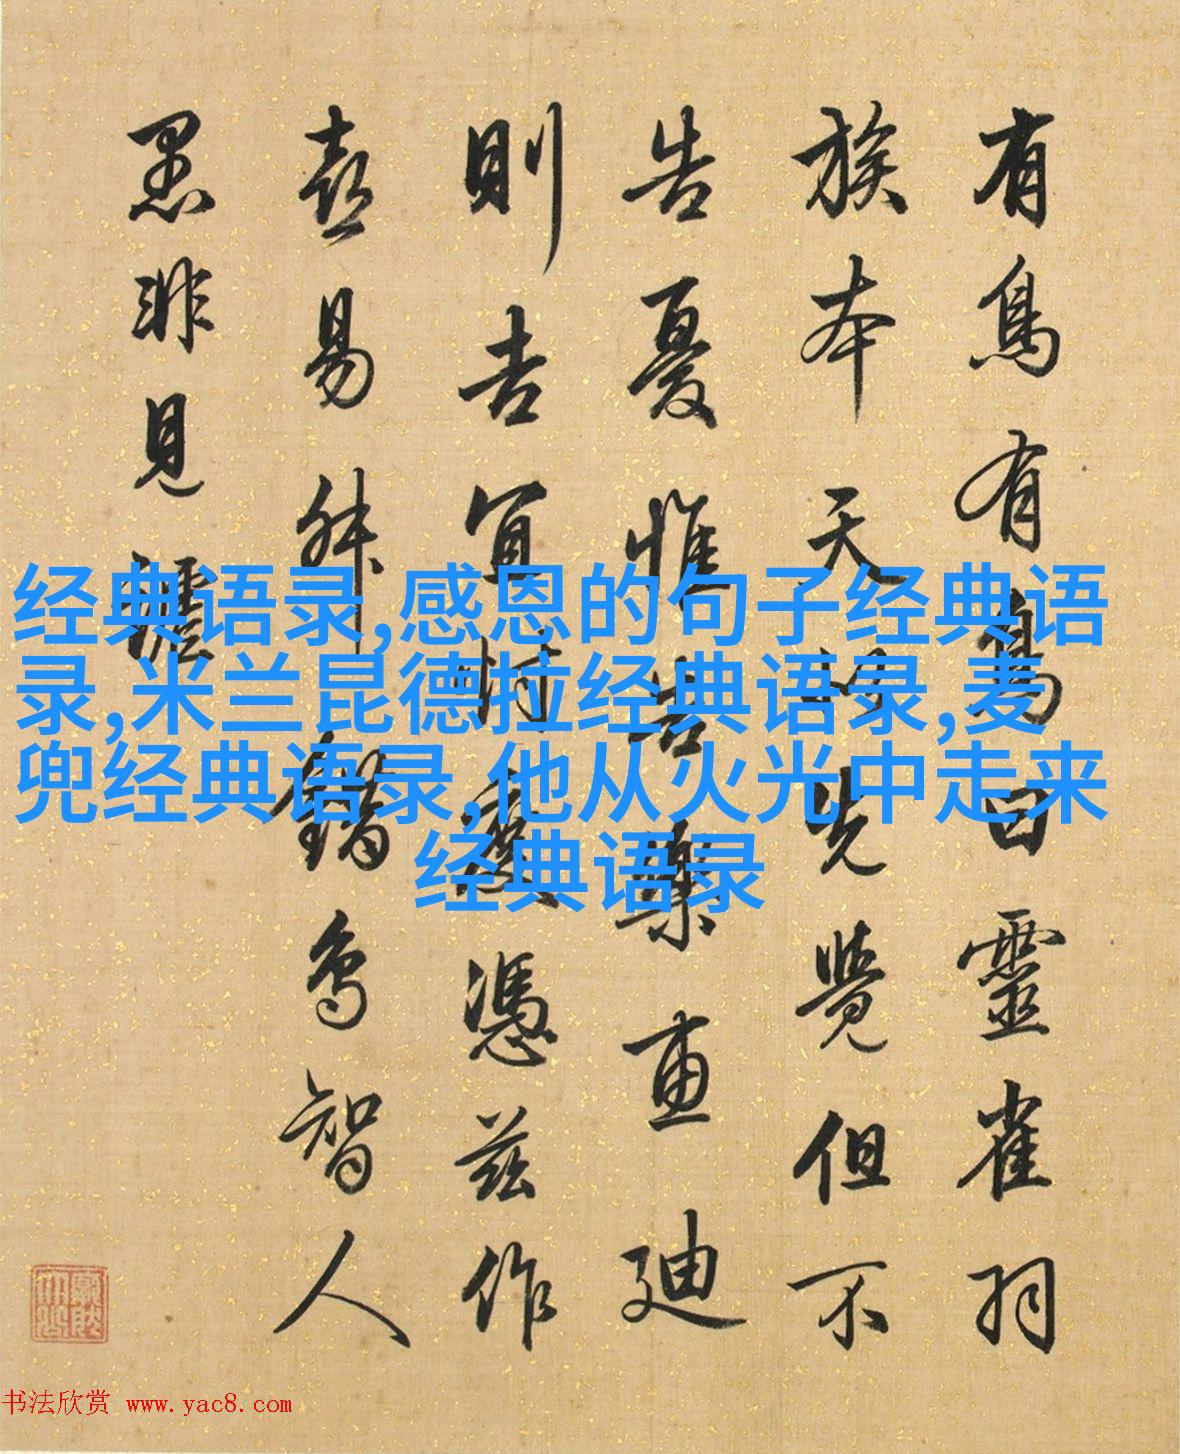 有鳥有鳥曰靈雀羽
族本天先覺但不
告憂惟告樂惠迪
則吉宜憑茲作
喜易舛錯智人
愚非見
经典语录,感恩的句子经典语
录,米兰昆德拉经典语录,麦
兜经典语录,他从火光中走来
经典语录
书法欣赏 www.yac8.com